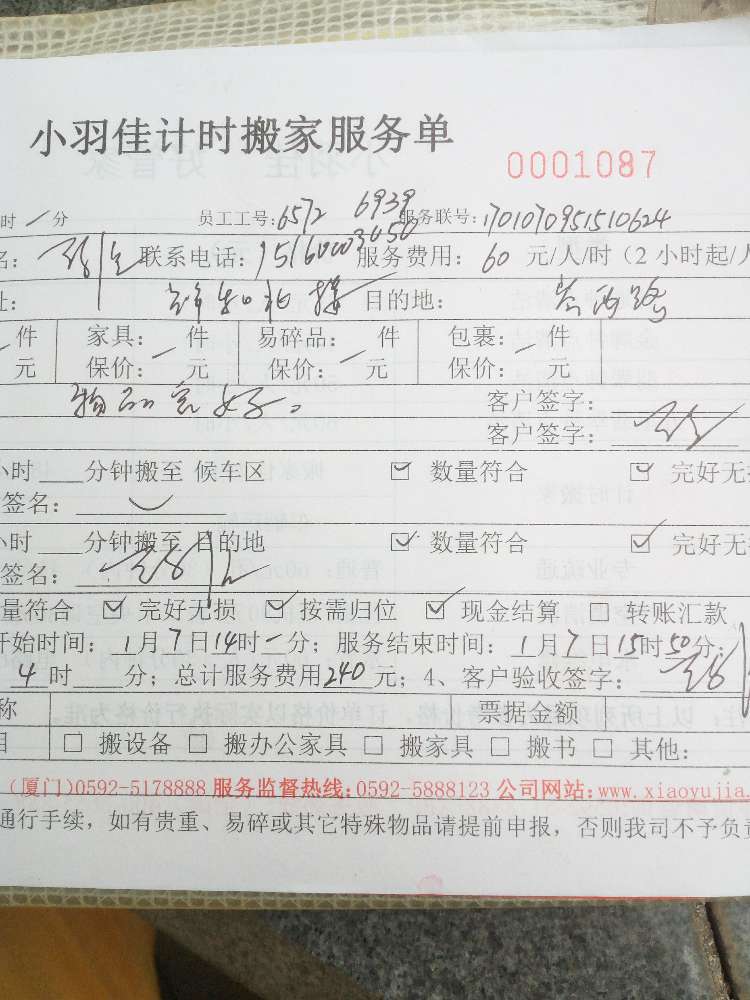 小羽佳计时搬家服务单
0001087
时 分 员工工号:6572 6939 服务联号:170107095151510624
名: 联系电话: 服务费用: 60 元/人/时(2小时起/人
址: 目的地:
件 家具: 件 易碎品: 件 包裹: 件
元 保价: 元 保价: 元 保价: 元
物品完好。 客户签字:
客户签字:
小时 分钟搬至 候车区 ☑ 数量符合 ☑ 完好无
签名:
小时 分钟搬至 目的地 ☑ 数量符合 ☑ 完好无
签名:
量符合 ☑ 完好无损 ☑ 按需归位 ☑ 现金结算 □ 转账汇款
开始时间: 1月7日14时 分; 服务结束时间: 1月7日15时50分;
4时 分; 总计服务费用240元; 4、客户验收签字:
称 票据金额
目 □ 搬设备 □ 搬办公家具 □ 搬家具 □ 搬书 □ 其他:
(厦门)0592-5178888 服务监督热线:0592-5888123 公司网站:www.xiaoyujia.
通行手续，如有贵重、易碎或其它特殊物品请提前申报，否则我司不予负